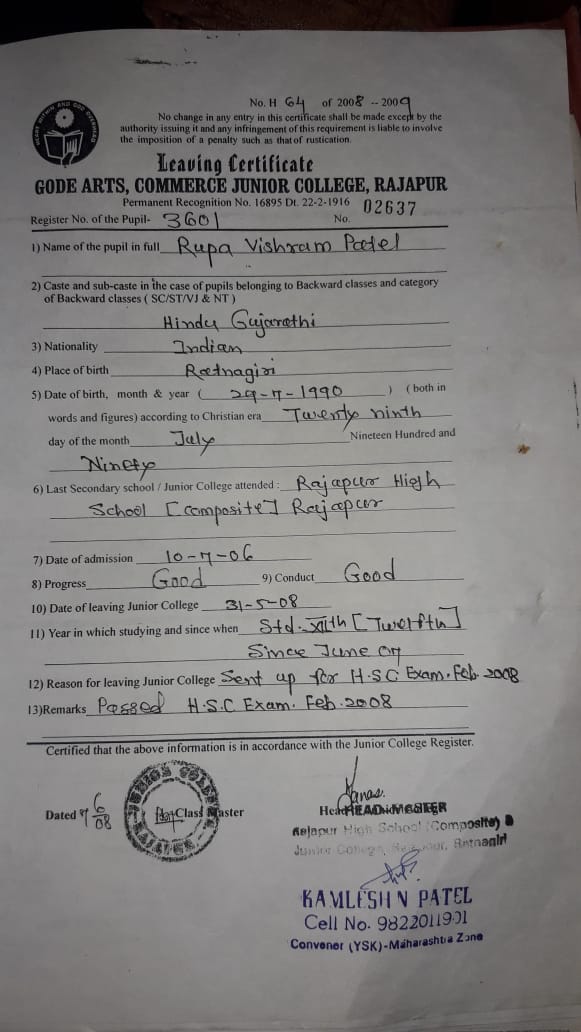 No. H 64 of 2008 -- 2009
No change in any entry in this certificate shall be made except by the
authority issuing it and any infringement of this requirement is liable to involve
the imposition of a penalty such as that of rustication.
Leaving Certificate
GODE ARTS, COMMERCE JUNIOR COLLEGE, RAJAPUR
Permanent Recognition No. 16895 Dt. 22-2-1916 02637
Register No. of the Pupil- 3601 No.
1) Name of the pupil in full Rupa Vishram Patel
2) Caste and sub-caste in the case of pupils belonging to Backward classes and category
of Backward classes ( SC/ST/VJ & NT )
Hindu Gujarathi
3) Nationality Indian
4) Place of birth Ratnagiri
5) Date of birth, month & year ( 29-7-1990 ) ( both in
words and figures) according to Christian era Twenty ninth
day of the month July Nineteen Hundred and
Ninety
6) Last Secondary school / Junior College attended : Rajapur High
School [Composite] Rajapur
7) Date of admission 10-7-06
8) Progress Good 9) Conduct Good
10) Date of leaving Junior College 31-5-08
11) Year in which studying and since when Std. XIIth [Twelfth]
Since June 07
12) Reason for leaving Junior College Sent up for H.S.C Exam. Feb 2008
13)Remarks Passed H.S.C Exam. Feb. 2008
Certified that the above information is in accordance with the Junior College Register.
JUNIOR COLLEGE
RAJAPUR
Dated 9/6/08 Class Master HEAD MASTER
Rajapur High School (Composite) &
Junior College, Rajapur, Ratnagiri
KAMLESH N PATEL
Cell No. 9822011901
Convener (YSK)-Maharashtra Zone